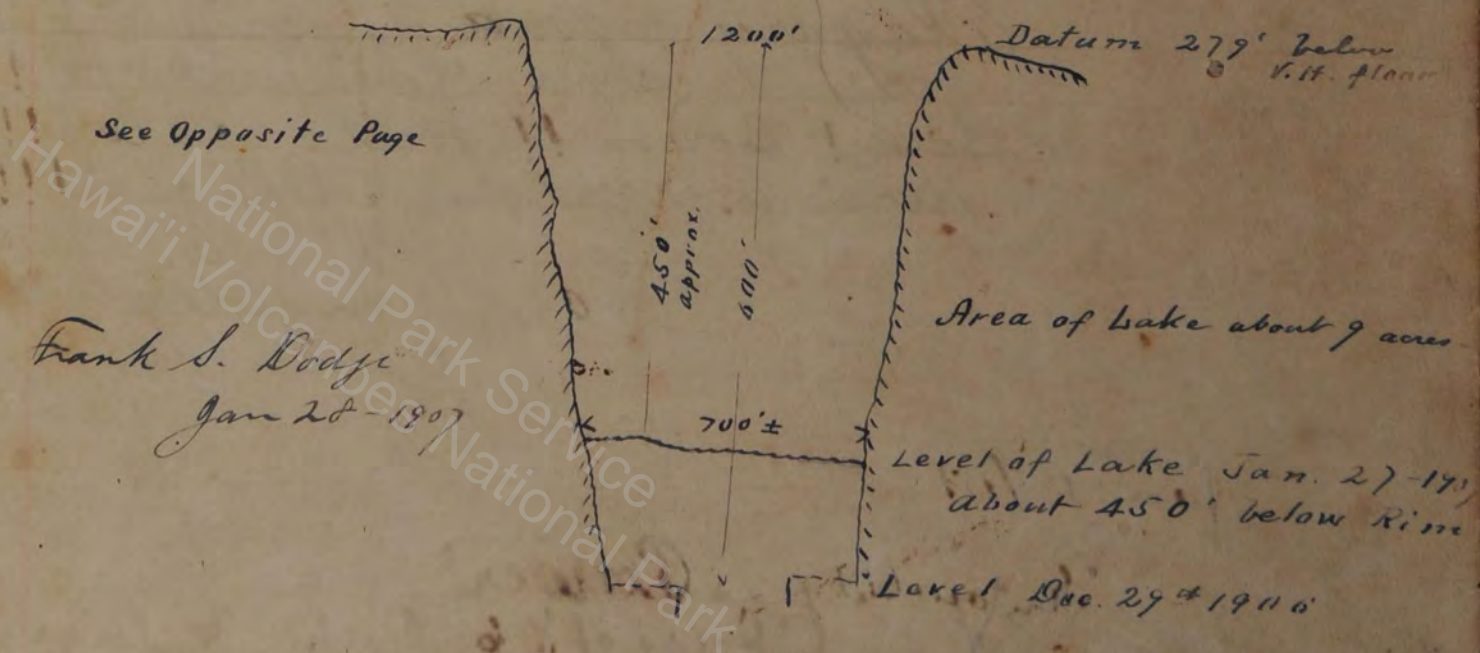 1200'
Datum 279' below
V.H. floor
See Opposite Page
450'
approx.
600'
Area of Lake about 9 acres
Frank S. Dodge
Jan 28-1907
700'±
Level of Lake Jan. 27-190
About 450' below Rim
Level Dec. 29th 1906
National Park Service
Hawai'i Volcanoes National Park